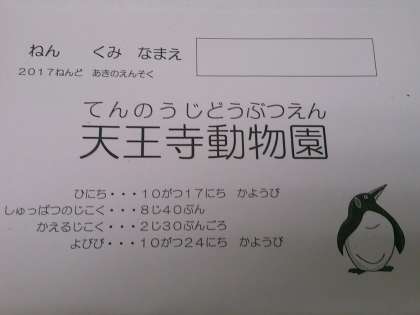 ねん　くみ　なまえ
２０１７ねんど　あきのえんそく
てんのうじどうぶつえん
天王寺動物園
ひにち・・・１０がつ１７にち　かようび
しゅっぱつのじこく・・・８じ４０ぷん
かえるじこく・・・２じ３０ぷんごろ
よびび・・・１０がつ２４にち　かようび